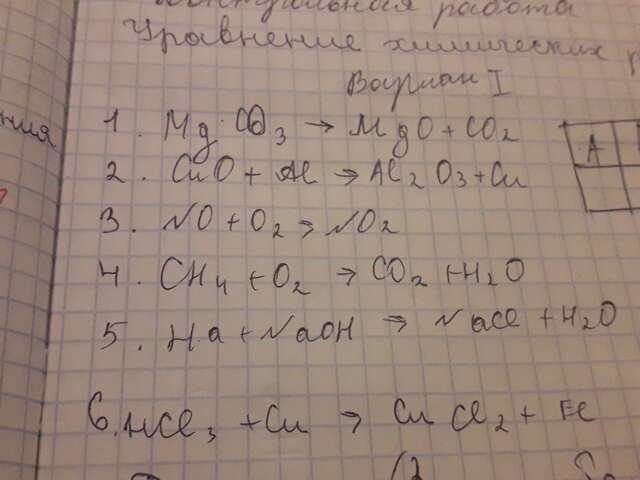 Контрольная работа
Уравнение химических р
Вариант I
ния
1. MgCO3 → MgO + CO2
A
2. CuO + Al → Al2O3 + Cu
3. NO + O2 → NO2
4. CH4 + O2 → CO2 + H2O
5. Ha + NaOH → NaCl + H2O
6. HCl3 + Cu → CuCl2 + Fe